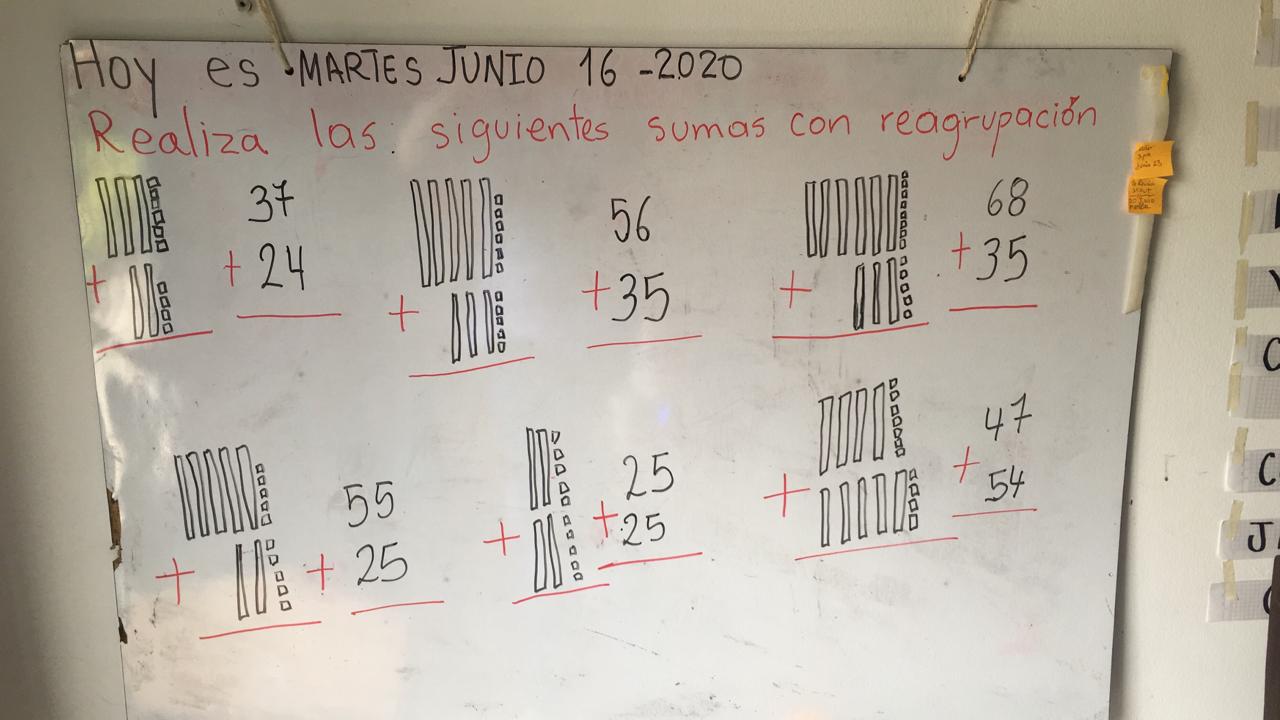 Hoy es MARTES JUNIO 16 -2020
Realiza las siguientes sumas con reagrupación
37
+ 24
56
+ 35
68
+ 35
55
+ 25
25
+ 25
47
+ 54